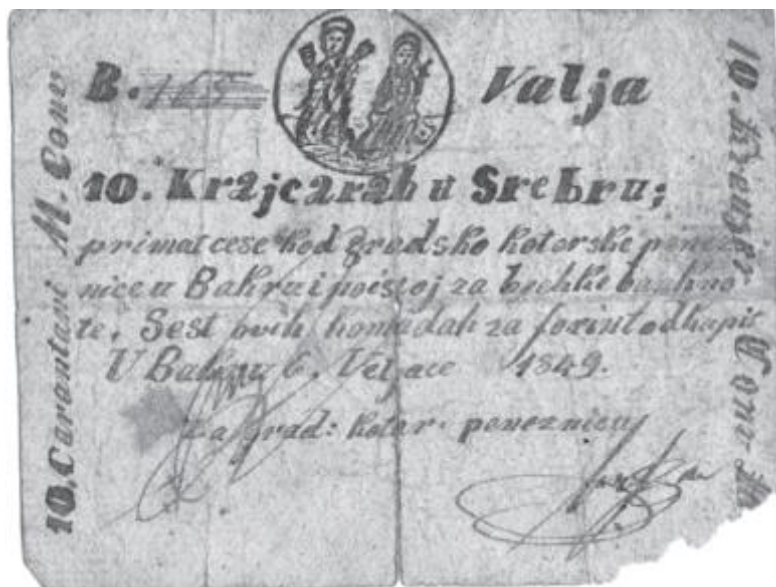 B. 165 Valja
10. Krajcarah u Srebru;
primat cese kod gradsko kotarske penez
nice u Bakru i poistoj za bechke bankno
te. Sest ovih komadah za forint odkupit
U Bakru 6. Veljace 1849.
Za grad: kotar. peneznicu
10. Carantani M. Conv
10. Kreuzer Conv M